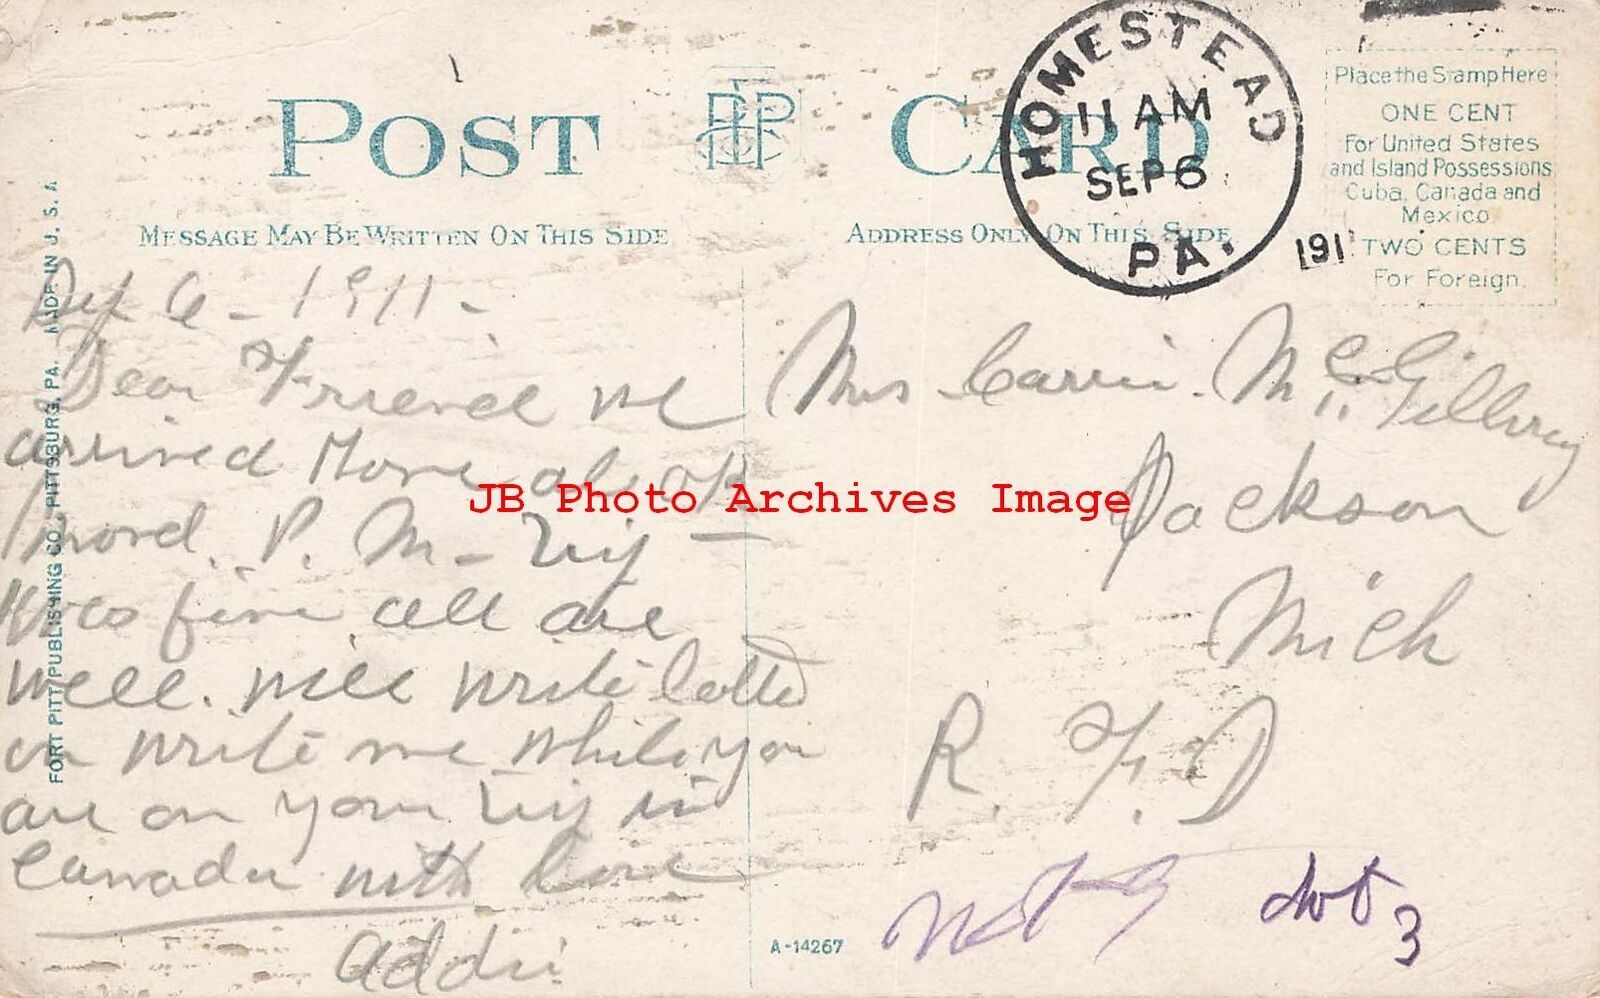 POST CARD
MESSAGE MAY BE WRITTEN ON THIS SIDE
ADDRESS ONLY ON THIS SIDE
HOMESTEAD
11 AM
SEP 6
PA.
191
Place the Stamp Here
ONE CENT
For United States
and Island Possessions
Cuba, Canada and
Mexico
TWO CENTS
For Foreign.
FORT PITT PUBLISHING CO., PITTSBURG, PA. MADE IN U. S. A
Sep 6 - 1911 -
Dear Friend we
arrived Home
mond. P. M -
was fine all are
well. will write
on write me while you
are on your in
Canada with love
Addie
Mrs Carrie. McGillvrey
Jackson
Mich
R. F. D
3
A-14267
JB Photo Archives Image